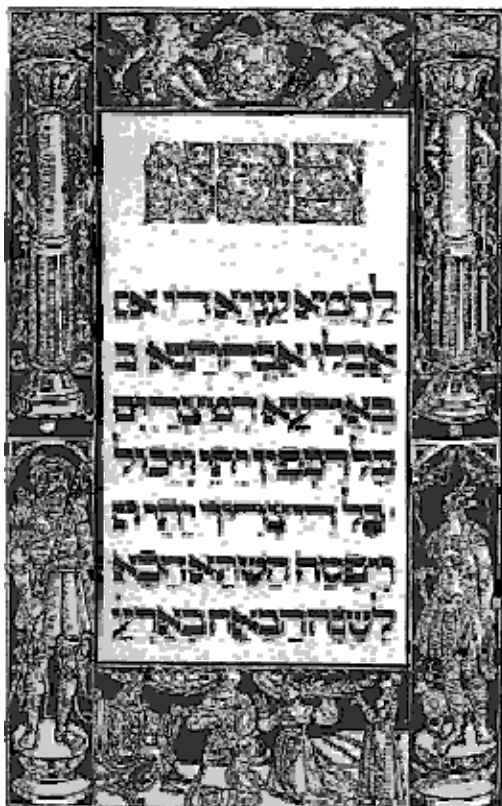 לַחְמָא עַנְיָא דִי
אֲכַלוּ אַבְהָתַנָא ב
בְּאַרְעָא דְמִצְרַיִם
כָּל דִכְפִין יֵיתֵי וְיֵיכוֹל
כָּל דִיצְרִיךְ
וְיִפְסַח הָשַׁתָּא הָכָא
לְשָׁנָה הַבָּאָה בְּאֶרֶץ